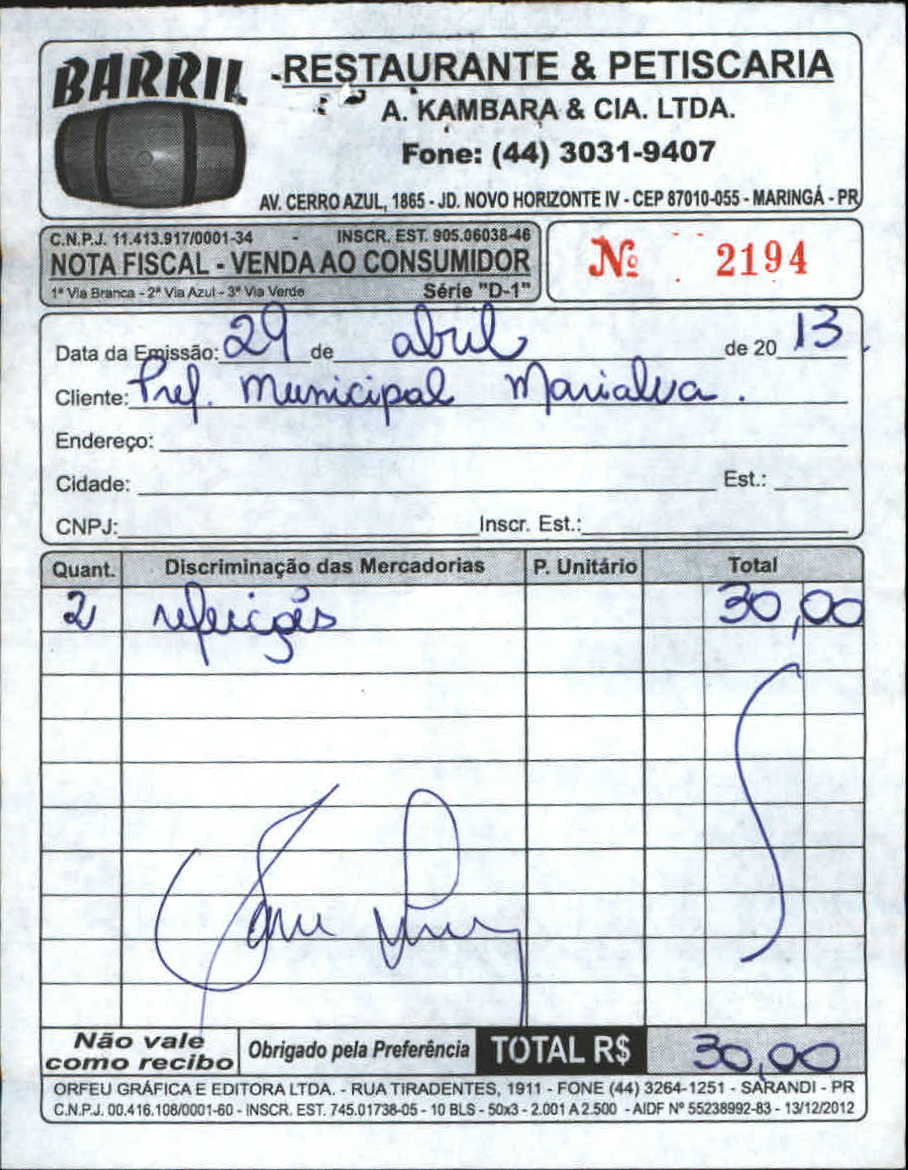 BARRIL -RESTAURANTE & PETISCARIA
A. KAMBARA & CIA. LTDA.
Fone: (44) 3031-9407
AV. CERRO AZUL, 1865 - JD. NOVO HORIZONTE IV - CEP 87010-055 - MARINGÁ - PR
C.N.P.J. 11.413.917/0001-34 - INSCR. EST. 905.06038-46
NOTA FISCAL - VENDA AO CONSUMIDOR
1ª Via Branca - 2ª Via Azul - 3ª Via Verde Série "D-1"
Nº 2194
Data da Emissão: 29 de abril de 20 13
Cliente: Pref. Municipal Marialva.
Endereço:
Cidade: Est.:
CNPJ: Inscr. Est.:
Quant. Discriminação das Mercadorias P. Unitário Total
2 refeições 30,00
Não vale como recibo Obrigado pela Preferência TOTAL R$ 30,00
ORFEU GRÁFICA E EDITORA LTDA. - RUA TIRADENTES, 1911 - FONE (44) 3264-1251 - SARANDI - PR
C.N.P.J. 00.416.108/0001-60 - INSCR. EST. 745.01738-05 - 10 BLS - 50x3 - 2.001 A 2.500 - AIDF Nº 55238992-83 - 13/12/2012